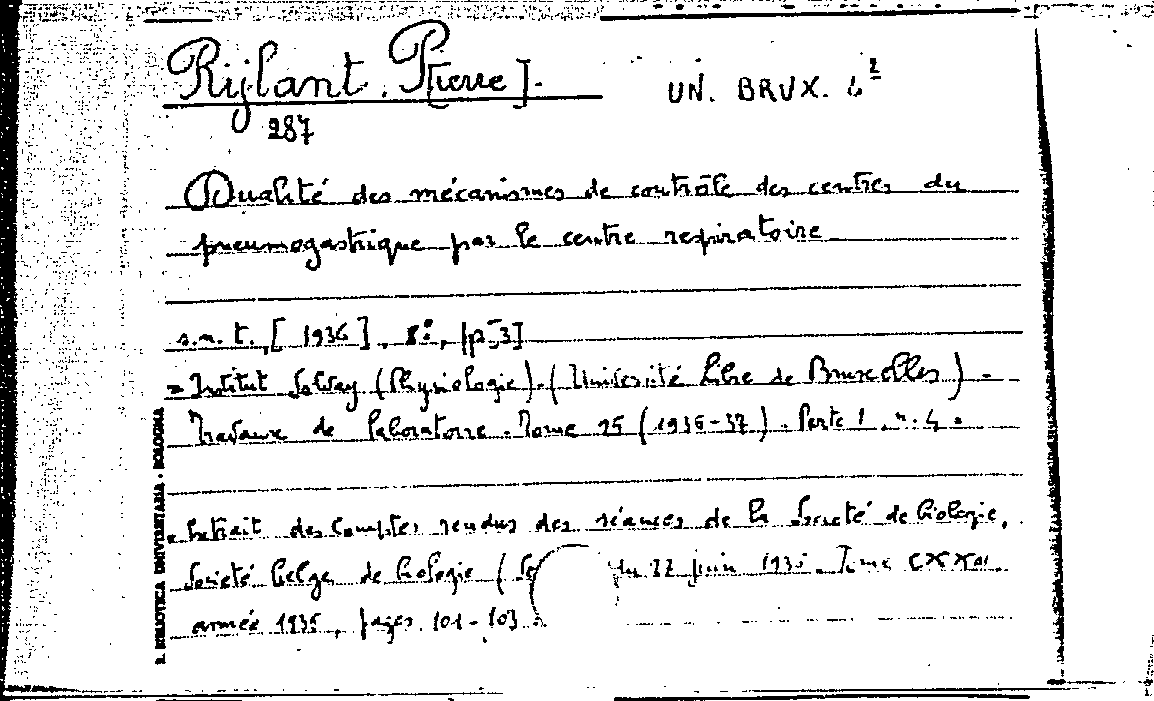 Rijlant. P[ierre].
UN. BRUX. 4²
287
Dualité des mécanismes de contrôle des centres du
pneumogastrique par le centre respiratoire
s.n.t., [1936], 8°, [p. 3]
= Institut Solvay (Physiologie). (Université Libre de Bruxelles). -
Travaux de laboratoire. Tome 25 (1936-37). Parte 1. n. 4.
Extrait des Comptes rendus des séances de la Société de biologie,
Société belge de biologie ( du 27 juin 1936. Tome
année 1936, pages 101-103.
R. BIBLIOTECA UNIVERSITARIA - BOLOGNA